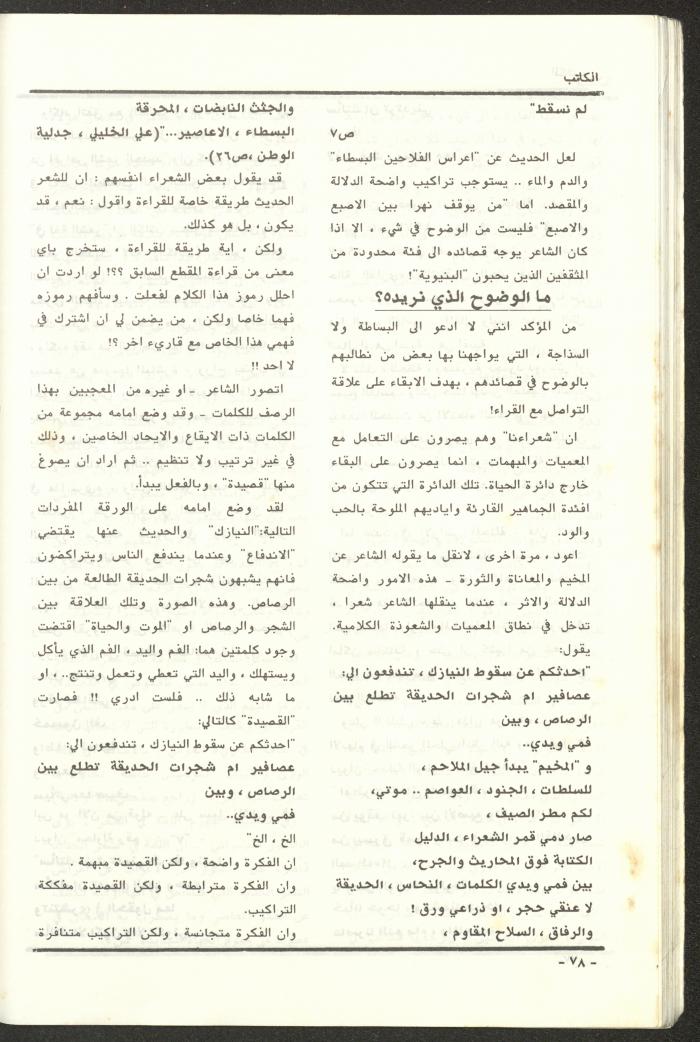 الكاتب
لم نسقط"
ص٧
لعل الحديث عن "اعراس الفلاحين البسطاء"
والدم والماء .. يستوجب تراكيب واضحة الدلالة
والمقصد. اما "من يوقف نهرا بين الاصبع
والاصبع" فليست من الوضوح في شيء ، الا اذا
كان الشاعر يوجه قصائده الى فئة محدودة من
المثقفين الذين يحبون "البنيوية"!
ما الوضوح الذي نريده؟
من المؤكد انني لا ادعو الى البساطة ولا
السذاجة ، التي يواجهنا بها بعض من نطالبهم
بالوضوح في قصائدهم ، بهدف الابقاء على علاقة
التواصل مع القراء!
ان "شعراءنا" وهم يصرون على التعامل مع
المعميات والمبهمات ، انما يصرون على البقاء
خارج دائرة الحياة. تلك الدائرة التي تتكون من
افئدة الجماهير القارئة واياديهم الملوحة بالحب
والود.
اعود ، مرة اخرى ، لانقل ما يقوله الشاعر عن
المخيم والمعاناة والثورة - هذه الامور واضحة
الدلالة والاثر ، عندما ينقلها الشاعر شعرا ،
تدخل في نطاق المعميات والشعوذة الكلامية.
يقول:
"احدثكم عن سقوط النيازك ، تندفعون الي:
عصافير ام شجرات الحديقة تطلع بين
الرصاص ، وبين
فمي ويدي..
و "المخيم" يبدأ جيل الملاحم ،
للسلطات ، الجنود ، العواصم .. موتي،
لكم مطر الصيف ،
صار دمي قمر الشعراء ، الدليل
الكتابة فوق المحاريث والجرح،
بين فمي ويدي الكلمات ، النحاس ، الحديقة
لا عنقي حجر ، او ذراعي ورق !
والرفاق ، السلاح المقاوم ،
والجثث النابضات ، المحرقة
البسطاء ، الاعاصير..."(علي الخليلي ، جدلية
الوطن ،ص٢٦).
قد يقول بعض الشعراء انفسهم : ان للشعر
الحديث طريقة خاصة للقراءة واقول : نعم ، قد
يكون ، بل هو كذلك.
ولكن ، اية طريقة للقراءة ، ستخرج باي
معنى من قراءة المقطع السابق ؟؟! لو اردت ان
احلل رموز هذا الكلام لفعلت . وسأفهم رموزه
فهما خاصا ولكن ، من يضمن لي ان اشترك في
فهمي هذا الخاص مع قاريء اخر ؟!
لا احد !!
اتصور الشاعر -او غيره من المعجبين بهذا
الرصف للكلمات - وقد وضع امامه مجموعة من
الكلمات ذات الايقاع والايحاد الخاصين ، وذلك
في غير ترتيب ولا تنظيم .. ثم اراد ان يصوغ
منها "قصيدة" ، وبالفعل يبدأ.
لقد وضع امامه على الورقة المفردات
التالية:"النيازك" والحديث عنها يقتضي
"الاندفاع" وعندما يندفع الناس ويتراكضون
فانهم يشبهون شجرات الحديقة الطالعة من بين
الرصاص. وهذه الصورة وتلك العلاقة بين
الشجر والرصاص او "الموت والحياة" اقتضت
وجود كلمتين هما: الفم واليد ، الفم الذي يأكل
ويستهلك ، واليد التي تعطي وتعمل وتنتج.. ، او
ما شابه ذلك .. فلست ادري !! فصارت
"القصيدة" كالتالي:
"احدثكم عن سقوط النيازك ، تندفعون الي:
عصافير ام شجرات الحديقة تطلع بين
الرصاص ، وبين
فمي ويدي..
الخ ، الخ"
ان الفكرة واضحة ، ولكن القصيدة مبهمة .
وان الفكرة مترابطة ، ولكن القصيدة مفككة
التراكيب.
وان الفكرة متجانسة ، ولكن التراكيب متنافرة
- ٧٨ -